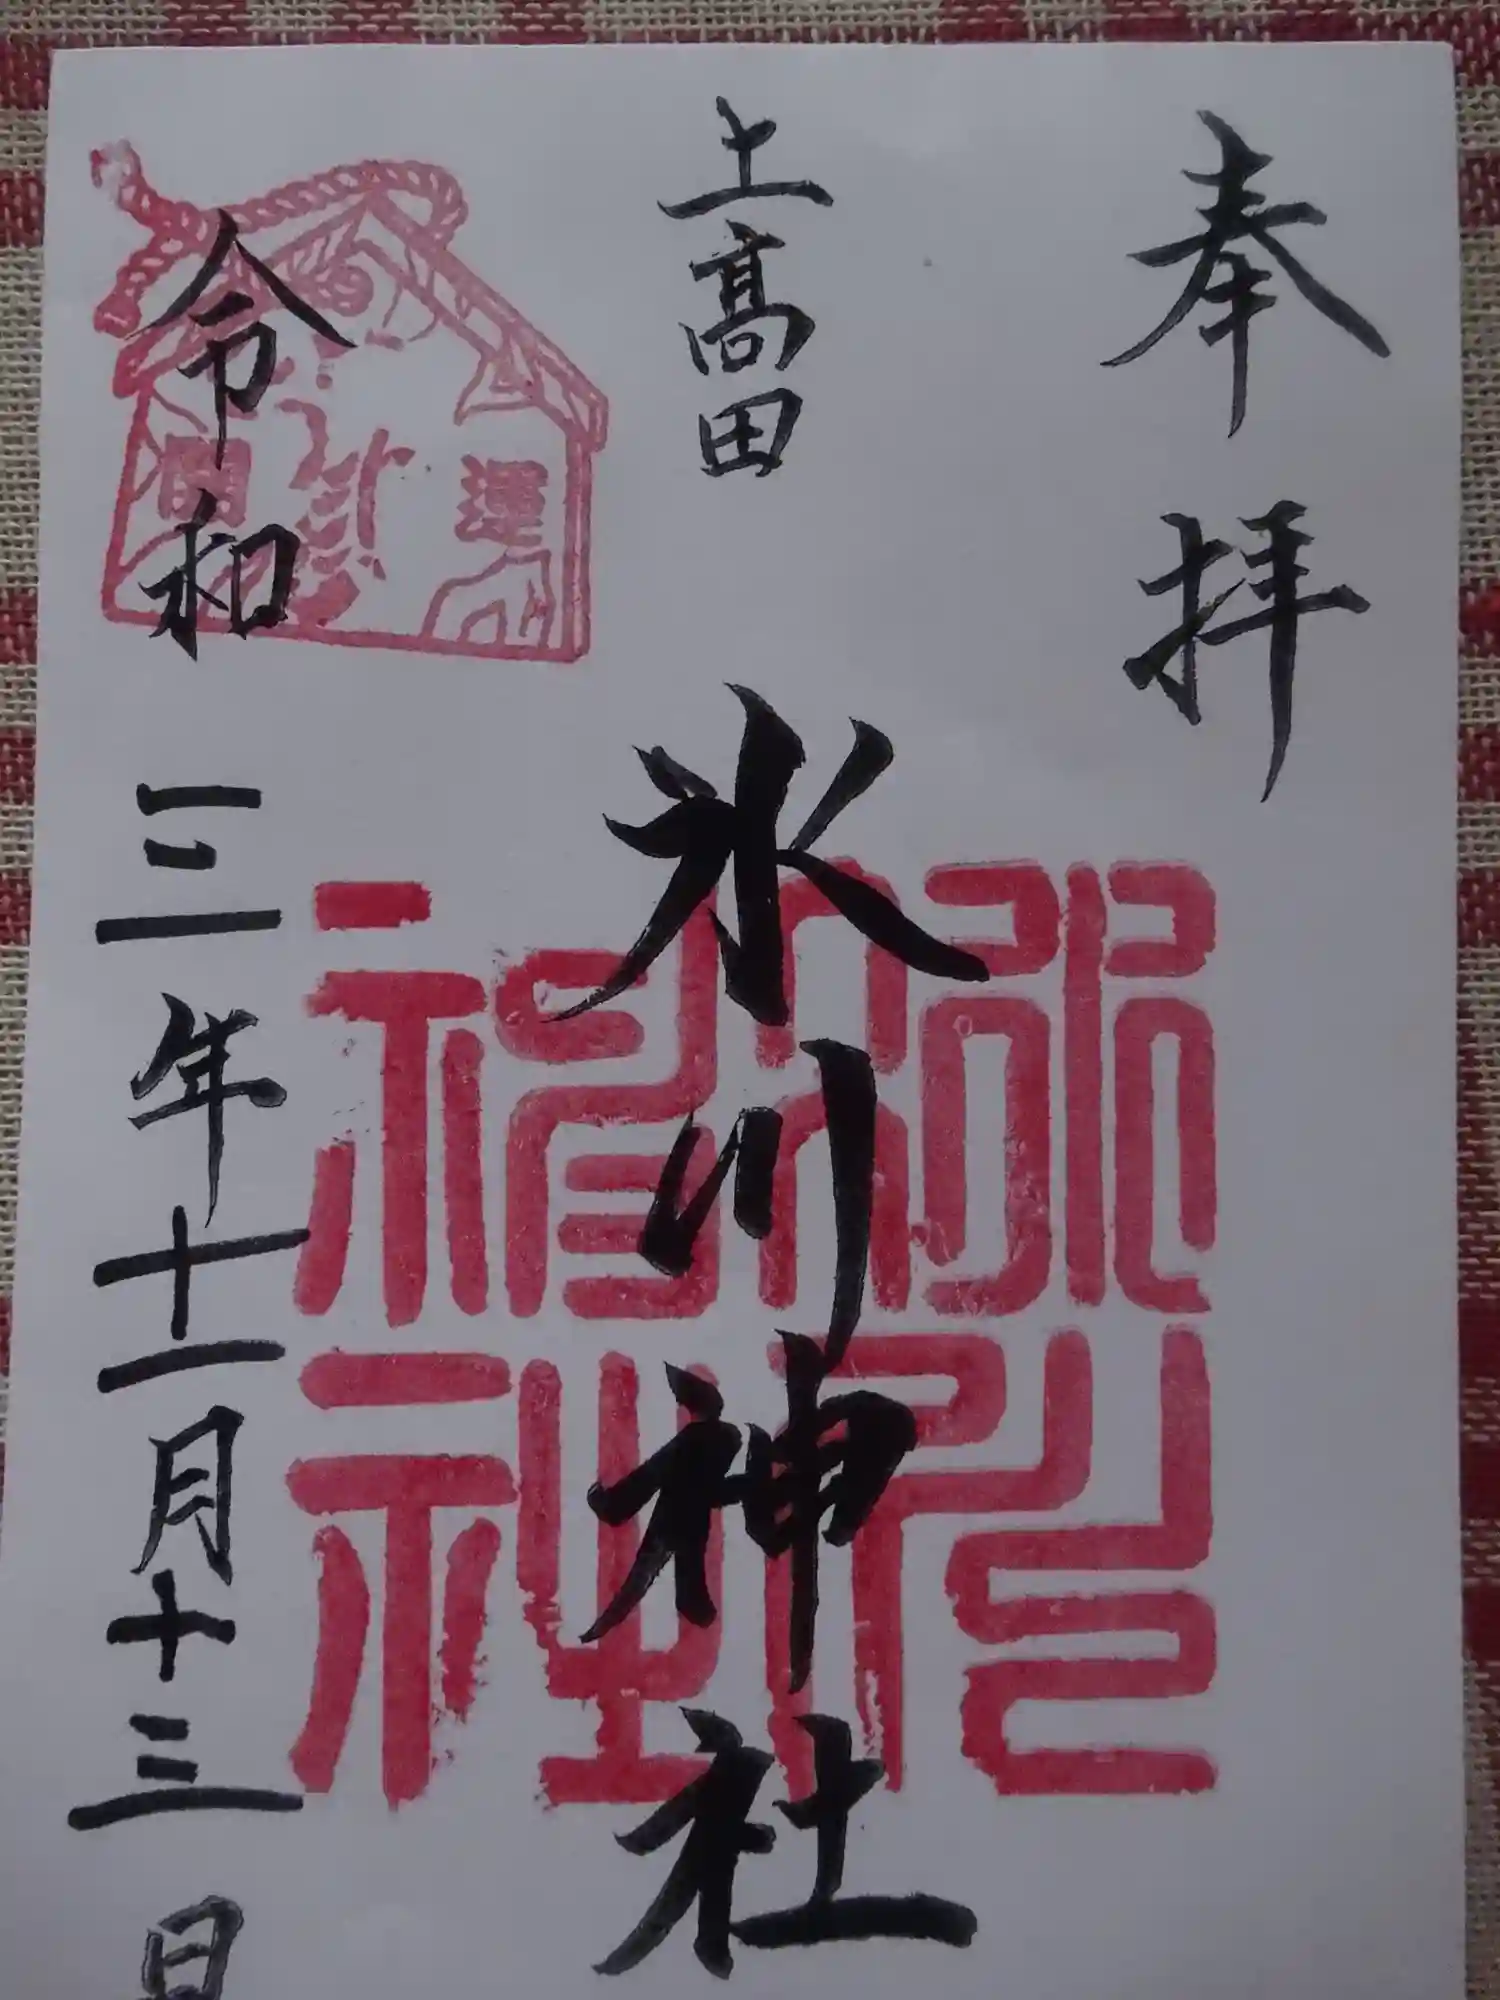 奉拝
上高田
氷川神社
令和三年十一月十三日
開運
氷川神社